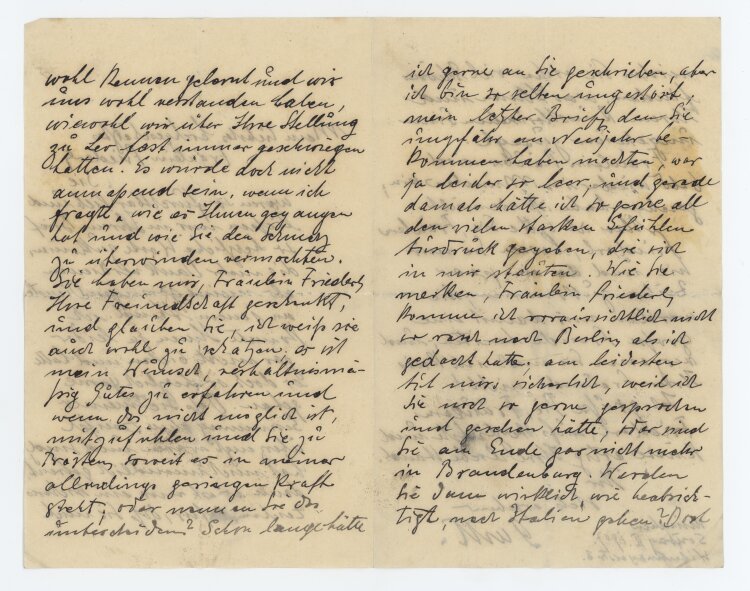 wohl kennen gelernt und wir
uns wohl verstanden haben,
wiewohl wir über Ihre Stellung
zu Leo fast immer geschwiegen
hatten. Es würde doch nicht
anmassend sein, wenn ich
fragte, wie es Ihnen gegangen
hat und wie Sie den Schmerz
zu überwinden vermochten.
Sie haben mir, Fräulein Friederl,
Ihre Freundschaft geschenkt,
und glauben Sie, ich weiß sie
auch wohl zu schätzen, es ist
mein Wunsch, verhältnismä-
ßig Gutes zu erfahren und
wenn das nicht möglich ist,
mitzufühlen und Sie zu
trösten, soweit es in meiner
allerdings geringen Kraft
steht; oder nennen Sie das
unbescheiden? Schon lange hätte
ich gerne an Sie geschrieben, aber
ich bin so selten ungestört;
mein letzter Brief, den Sie
ungefähr an Neujahr be-
kommen haben mochten, war
ja leider so leer, und gerade
damals hätte ich so gerne all
den vielen starken Gefühlen
Ausdruck gegeben, die sich
in mir stauten. Wie Sie
merken, Fräulein Friederl,
komme ich voraussichtlich nicht
so rasch nach Berlin, als ich
gedacht hatte, am leidesten
tut mirs sicherlich, weil ich
Sie noch so gerne gesprochen
und gesehen hätte, oder sind
Sie am Ende gar nicht mehr
in Brandenburg. Werden
Sie dann wirklich, wie beabsich-
tigt, nach Italien gehen? Dort